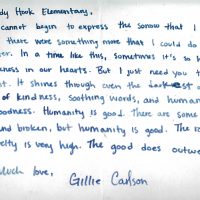 dy Hook Elementary,
cannot begin to express the sorrow that I
there were something more that I could do
er. In a time like this, sometimes it's so
kness in our hearts. But I just need you t
t. It shines through even the darkest o
of kindness, soothing words, and human
oodness. Humanity is good. There are some
nd broken, but humanity is good. The
elty is very high. The good does outwe
Much love,
Gillie Carlson